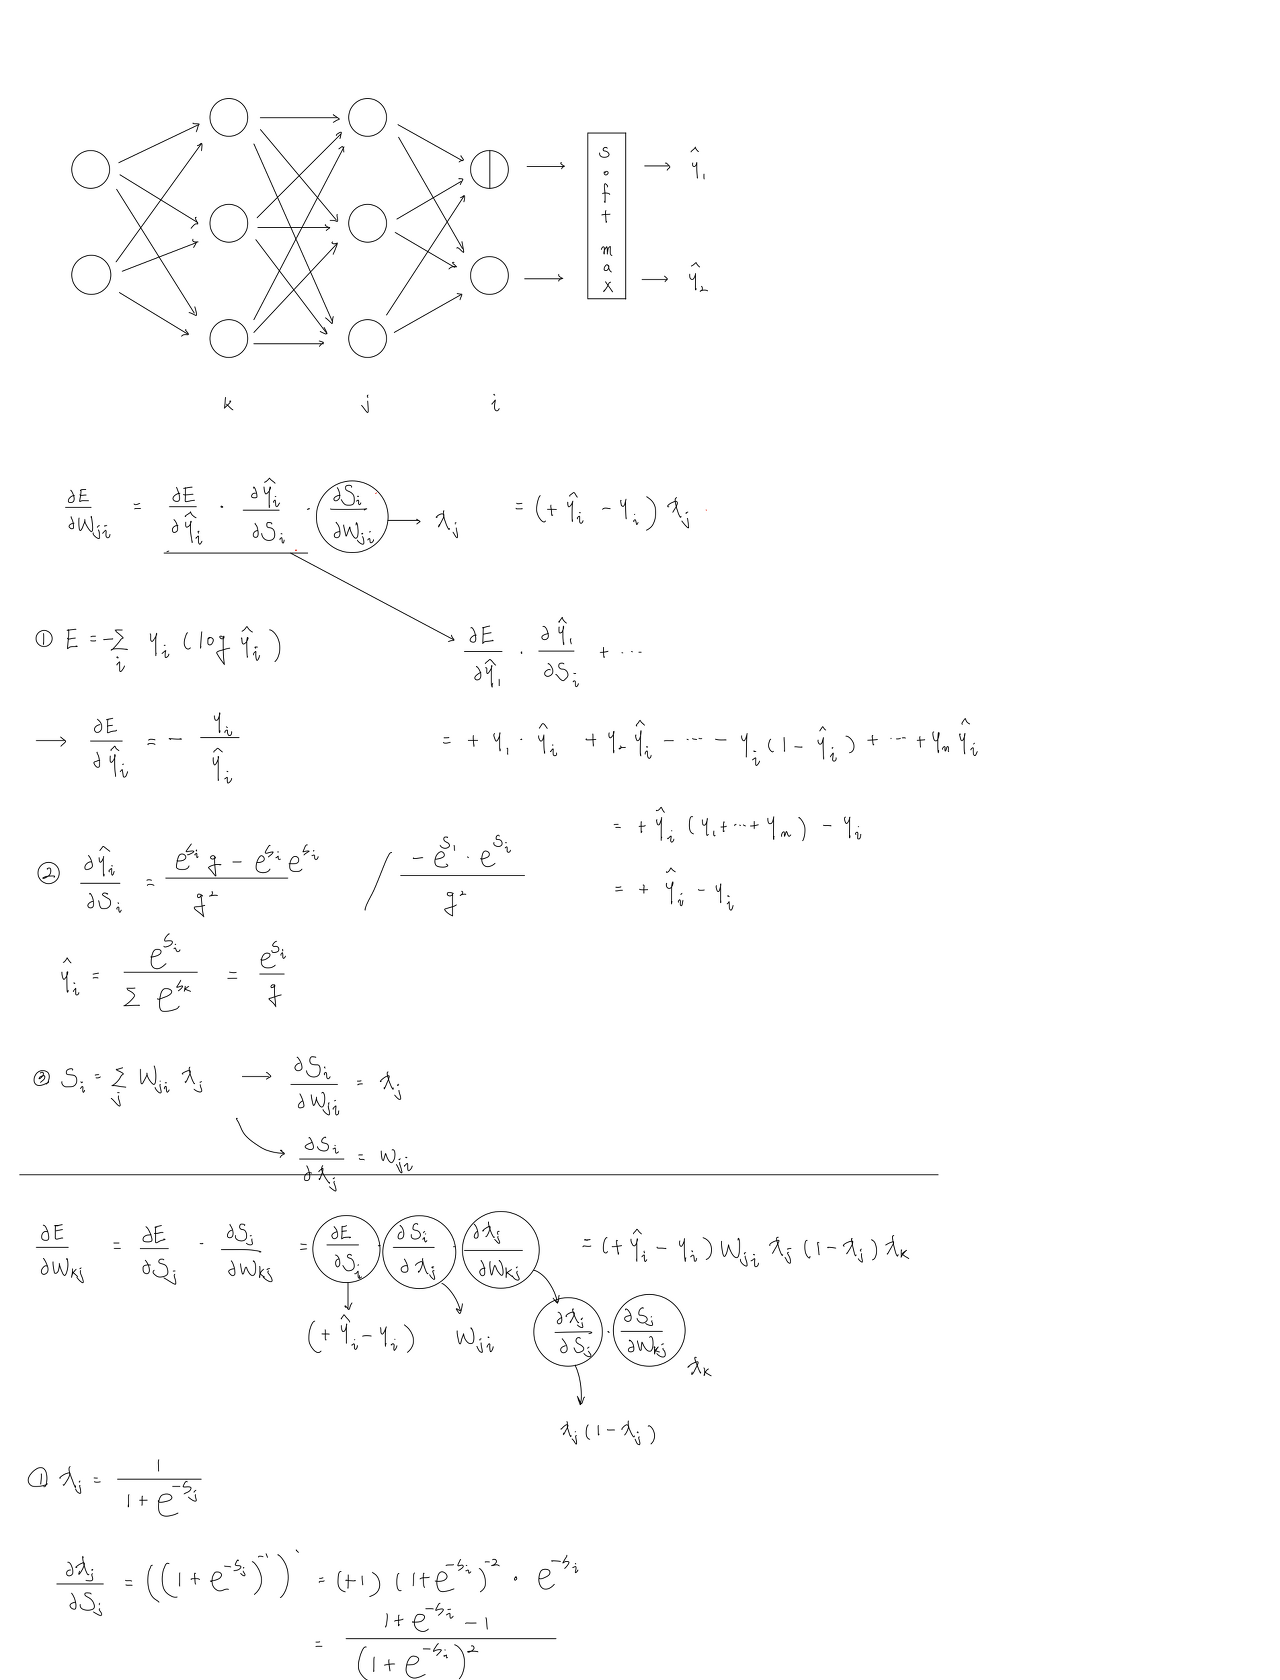 soft max
ŷ₁
ŷ₂
k j i
∂E/∂W_ji = ∂E/∂ŷ_i · ∂ŷ_i/∂S_i · ∂S_i/∂W_ji → x_j = (+ ŷ_i - y_i) x_j
① E = -Σ_i y_i (log ŷ_i)
∂E/∂ŷ₁ · ∂ŷ₁/∂S_i + ...
→ ∂E/∂ŷ_i = - y_i/ŷ_i
= + y₁ · ŷ_i + y₂ ŷ_i - ... - y_i (1 - ŷ_i) + ... + y_n ŷ_i
= + ŷ_i (y₁ + ... + y_n) - y_i
= + ŷ_i - y_i
② ∂ŷ_i/∂S_i = (e^{S_i} g - e^{S_i} e^{S_i})/g² / (- e^{S₁} · e^{S_i})/g²
ŷ_i = e^{S_i}/(Σ e^{S_k}) = e^{S_i}/g
③ S_i = Σ_j W_ji x_j → ∂S_i/∂W_ji = x_j
→ ∂S_i/∂x_j = W_ji
∂E/∂W_kj = ∂E/∂S_j · ∂S_j/∂W_kj = ∂E/∂S_i · ∂S_i/∂x_j · ∂x_j/∂W_kj = (+ ŷ_i - y_i) W_ji x_j (1 - x_j) x_k
(+ ŷ_i - y_i) W_ji ∂x_j/∂S_j · ∂S_j/∂W_kj x_k
x_j (1 - x_j)
① x_j = 1/(1 + e^{-S_j})
∂x_j/∂S_j = ((1 + e^{-S_j})^{-1})' = (+1) (1 + e^{-S_i})^{-2} · e^{-S_i}
= (1 + e^{-S_i} - 1)/(1 + e^{-S_i})²